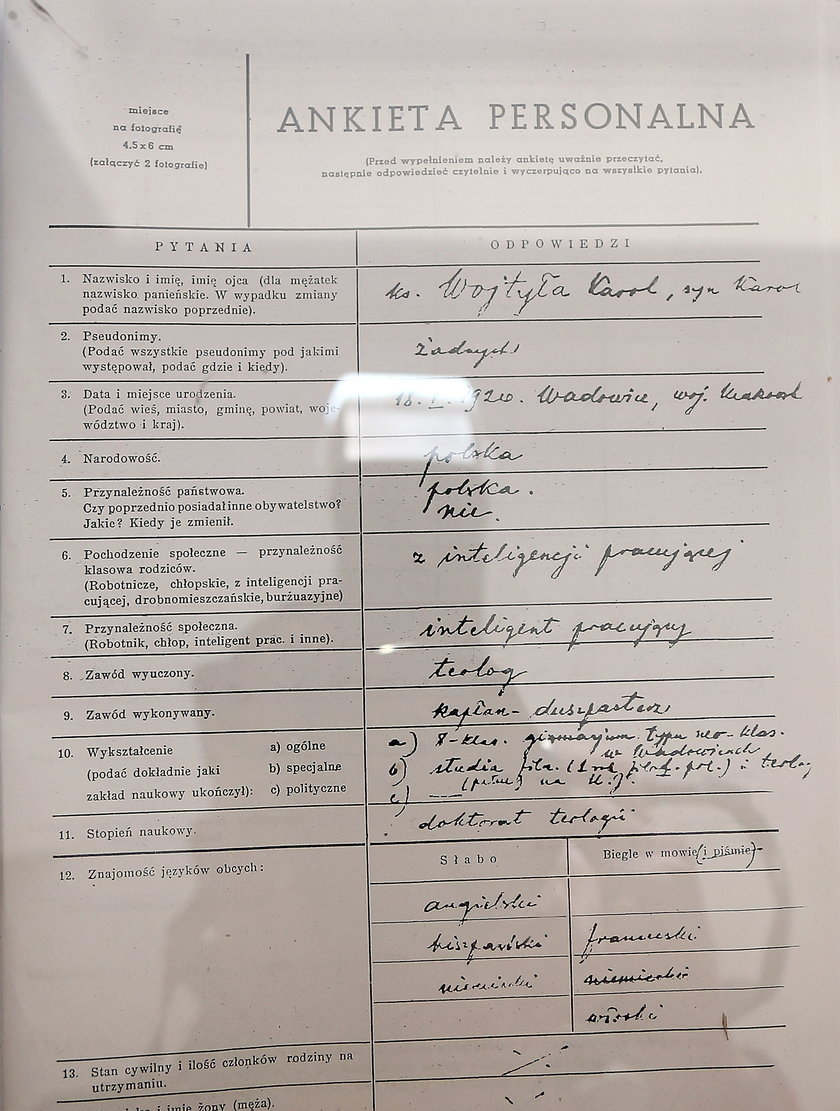 miejsce
na fotografię
4.5 x 6 cm
(załączyć 2 fotografie)
ANKIETA PERSONALNA
(Przed wypełnieniem należy ankietę uważnie przeczytać,
następnie odpowiedzieć czytelnie i wyczerpująco na wszystkie pytania).
PYTANIA
ODPOWIEDZI
1. Nazwisko i imię, imię ojca (dla mężatek
nazwisko panieńskie. W wypadku zmiany
podać nazwisko poprzednie).
ks. Wojtyła Karol, syn Karol
2. Pseudonimy.
(Podać wszystkie pseudonimy pod jakimi
występował, podać gdzie i kiedy).
żadnych
3. Data i miejsce urodzenia.
(Podać wieś, miasto, gminę, powiat, woje-
wództwo i kraj).
18. 1920. Wadowice, woj.
4. Narodowość.
polska
5. Przynależność państwowa.
Czy poprzednio posiadał inne obywatelstwo?
Jakie? Kiedy je zmienił.
polska.
nie.
6. Pochodzenie społeczne — przynależność
klasowa rodziców.
(Robotnicze, chłopskie, z inteligencji pra-
cującej, drobnomieszczańskie, burżuazyjne)
z inteligencji pracującej
7. Przynależność społeczna.
(Robotnik, chłop, inteligent prac. i inne).
inteligent pracujący
8. Zawód wyuczony.
teolog
9. Zawód wykonywany.
kapłan - duszpasterz
10. Wykształcenie
(podać dokładnie jaki
zakład naukowy ukończył):
a) ogólne
b) specjalne
c) polityczne
a) 8-klas. gimnazjum typu neo-klas.
w Wadowicach
b) studia fil. (1 rok pol.) i teolog
(pełne) na U.J.
c) —
11. Stopień naukowy.
doktorat teologii
12. Znajomość języków obcych:
Słabo
Biegle w mowie (i piśmie)
angielski
hiszpański
francuski
niemiecki
niemiecki
włoski
13. Stan cywilny i ilość członków rodziny na
utrzymaniu.
i imię żony (męża).